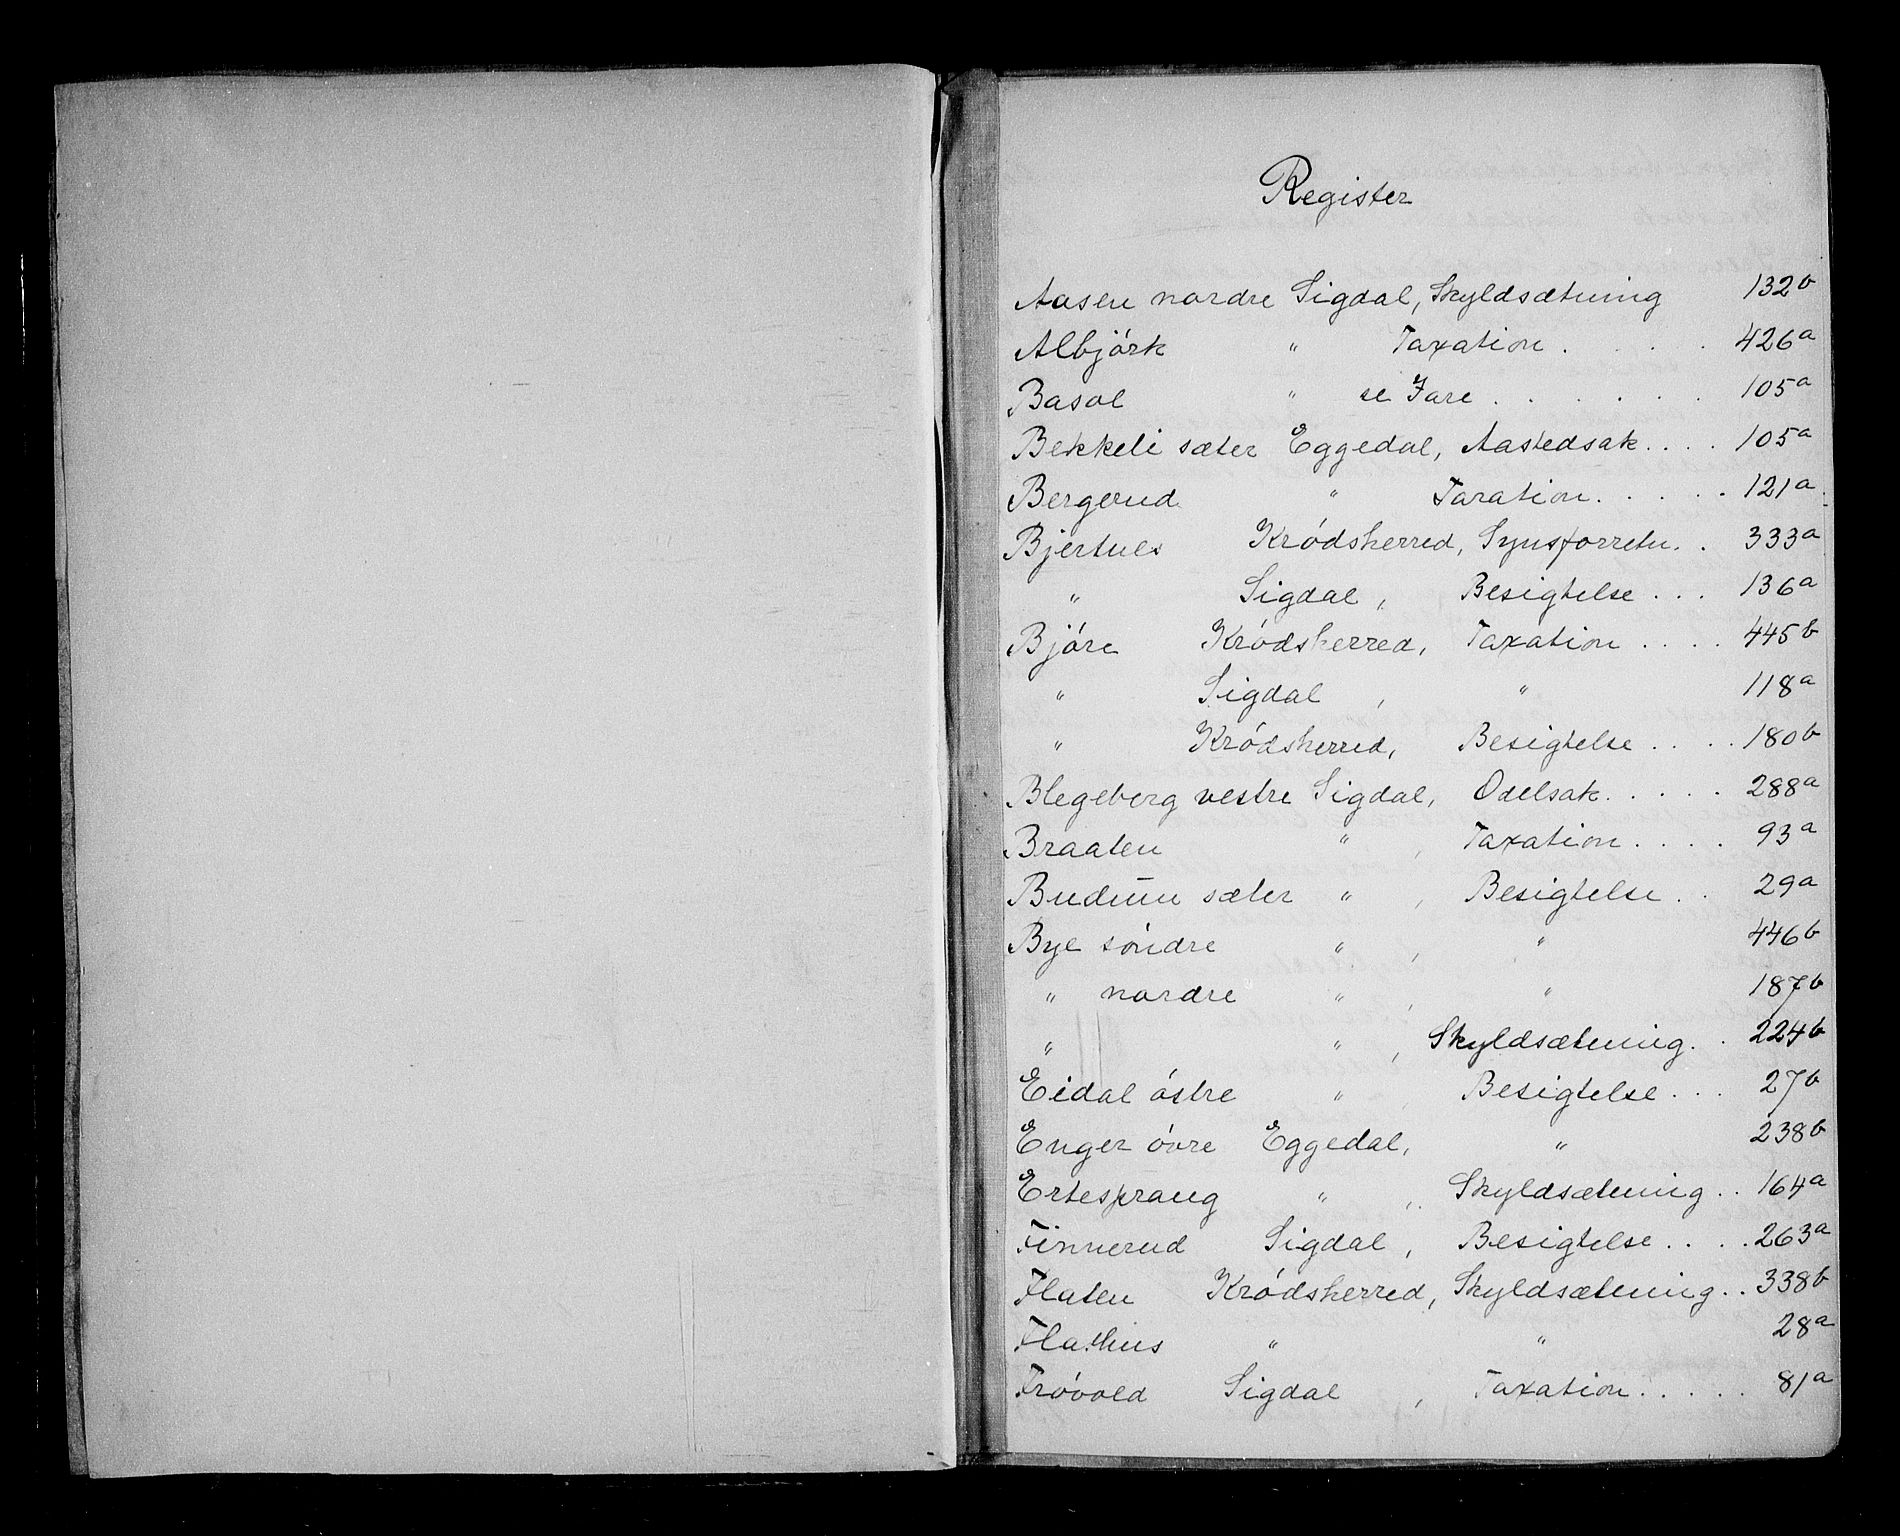 Register
Aasen nordre Sigdal, Skyldsætning 132b
Albjórk " Taxation . . . . 426a
Basol " se Fare . . . . . . 105a
Bekkeli sæter Eggedal, Aastedsak . . . . 105a
Bergerud " Taxation . . . . . 121a
Bjertnes Kródsherred, Synsforretn. . 333a
" Sigdal, Besigtelse . . . 136a
Bjóre Kródsherred, Taxation . . . . 445b
" Sigdal, " 118a
" Kródsherred, Besigtelse . . . . 180b
Blegeberg vestre Sigdal, Odelsak . . . . . 288a
Braaten " , Taxation . . . . 93a
Buduun sæter " , Besigtelse . . 29a
Bye sóndre " , " 446b
" nordre " , " 187b
" " , Skyldsætning . . 224b
Eidal óstre " , Besigtelse . . . 27b
Enger óvre Eggedal, " 238b
Ertesprang " , Skyldsætning . . 164a
Finnerud Sigdal, Besigtelse . . . . 263a
Flaten Kródsherred, Skyldsætning . . 338b
Flathus " " 28a
Fróvold Sigdal, Taxation . . . . . 81a